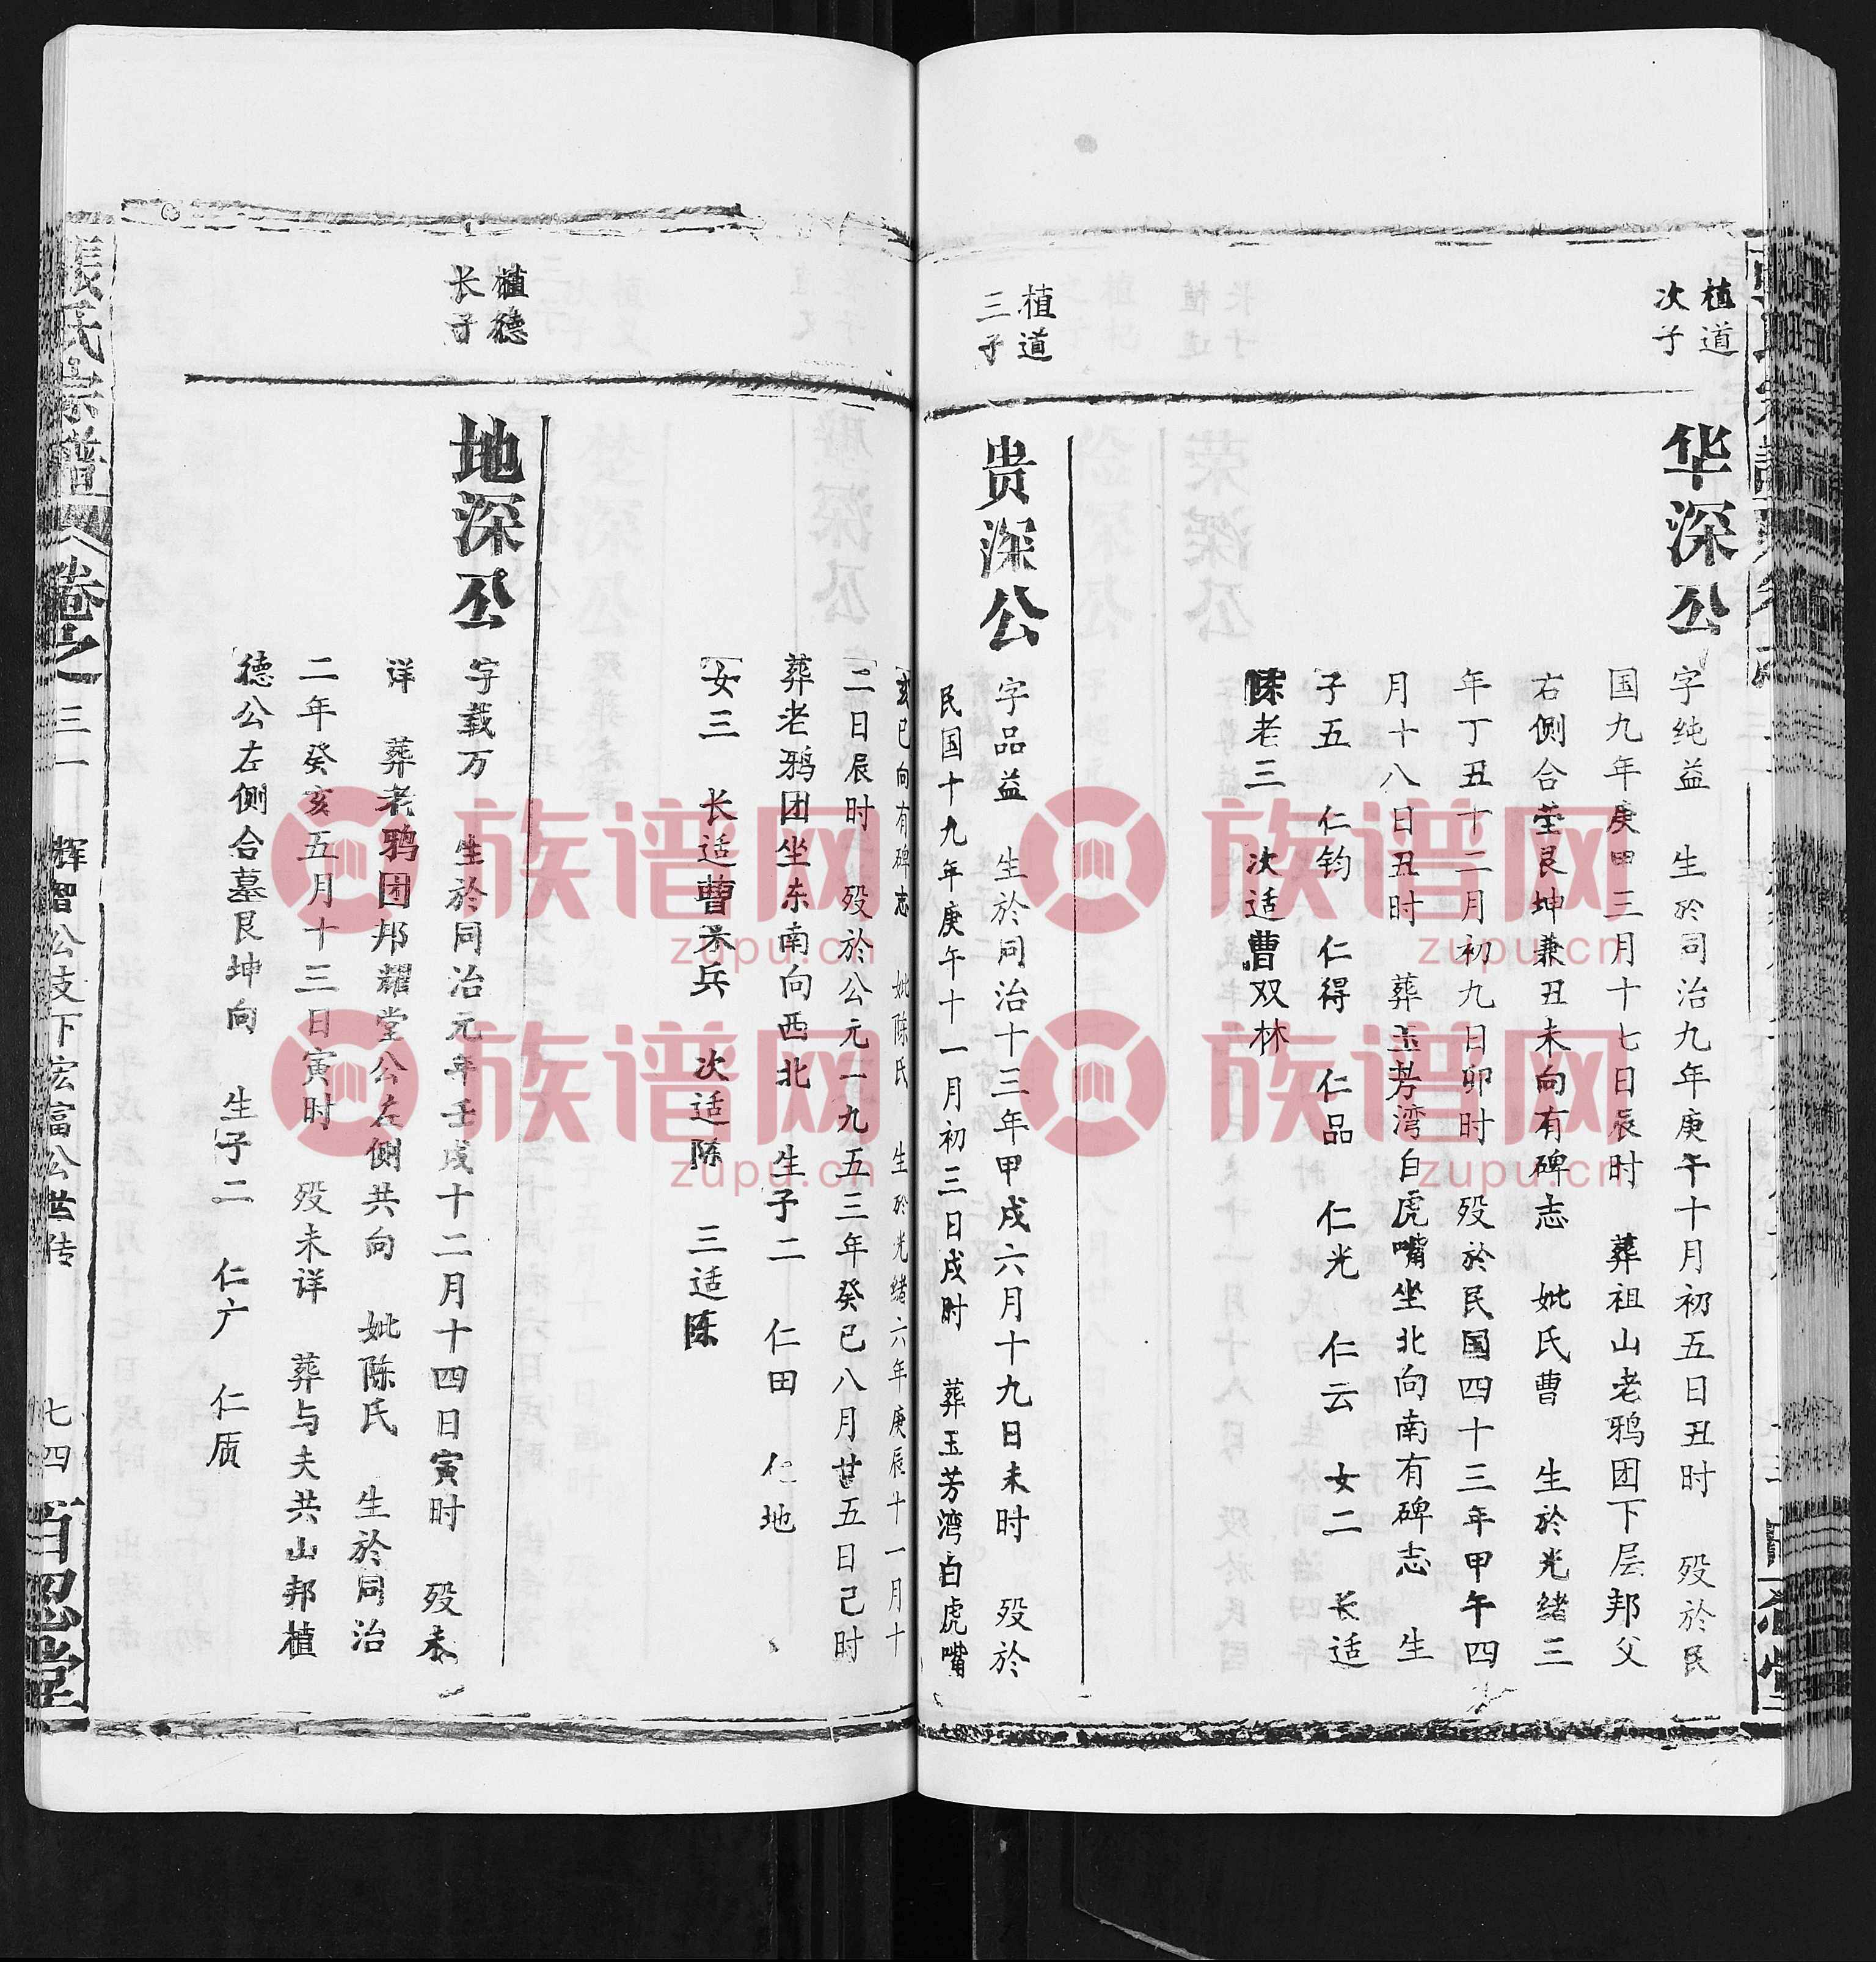 植道
次子
华深公
字纯益 生於同治九年庚午十月初五日丑时 殁於民
国九年庚申三月十七日辰时 葬祖山老鸦团下层邦父
右侧合茔艮坤兼丑未向有碑志 妣氏曹 生於光绪三
年丁丑十二月初九日卯时 殁於民国四十三年甲午四
月十八日丑时 葬玉芳湾白虎嘴坐北向南有碑志 生
子五 仁钧 仁得 仁品 仁光 仁云 女二 长适
陈老三 次适曹双林
植道
三子
贵深公
字品益 生於同治十三年甲戌六月十九日未时 殁於
民国十九年庚午十一月初三日戌时 葬玉芳湾白虎嘴
亥巳向有碑志 妣陈氏 生於光绪六年庚辰十一月十
二日辰时 殁於公元一九五三年癸巳八月廿五日己时
葬老鸦团坐东南向西北 生子二 仁田 仁地
女三 长适曹米兵 次适陈 三适陈
植德
长子
地深公
字载万 生於同治元年壬戌十二月十四日寅时 殁未
详 葬老鸦团邦耀堂公左侧共向 妣陈氏 生於同治
二年癸亥五月十三日寅时 殁未详 葬与夫共山邦植
德公左侧合墓艮坤向 生子二 仁广 仁质
張氏宗譜
卷之三一 辉智公支下宏富公世传 七四 百忍堂
族谱网
zupu.cn
族谱网
zupu.cn
族谱网
zupu.cn
族谱网
zupu.cn